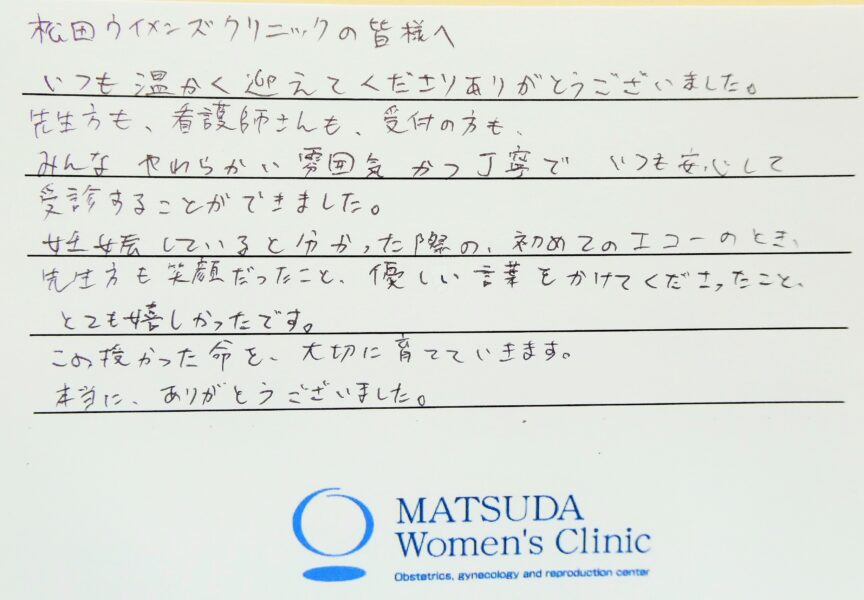 松田ウイメンズクリニックの皆様へ
いつも温かく迎えてくださりありがとうございました。
先生方も、看護師さんも、受付の方も、
みんな やわらかい 雰囲気 かつ 丁寧で いつも安心して
受診することができました。
妊娠していると分かった際の、初めてのエコーのとき、
先生方も笑顔だったこと、優しい言葉をかけてくださったこと、
とても嬉しかったです。
この授かった命を、大切に育てていきます。
本当に、ありがとうございました。
MATSUDA
Women's Clinic
Obstetrics, gynecology and reproduction center